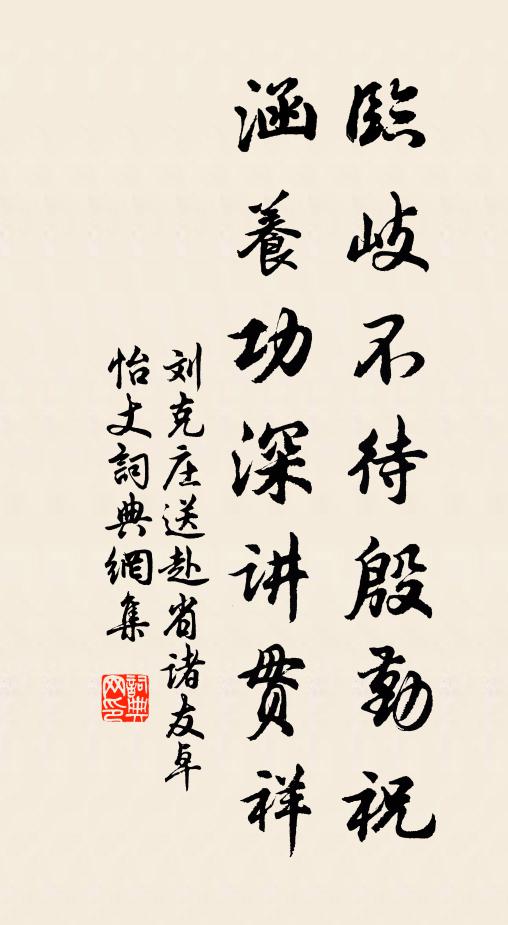 臨岐不待殷勤祝
涵養功深讲贯祥
刘克庄送赴省诸友卓
怡丈詞典網集
詞典网印